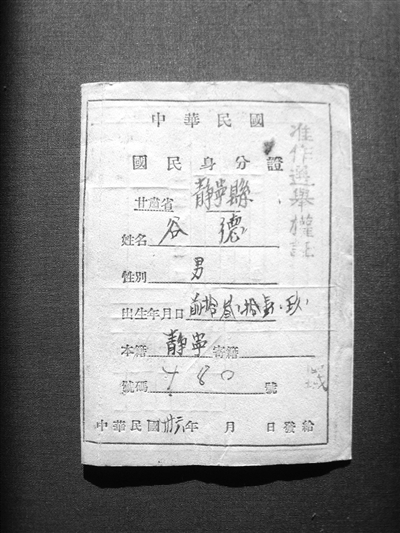 中華民國
國民身分證
甘肅省 靜寧縣
姓名 谷 德
性別 男
出生年月日 前拾叁、拾
本籍 靜寧 寄籍
號碼 780 號
中華民國卅六年 月 日發給
准作選舉權証